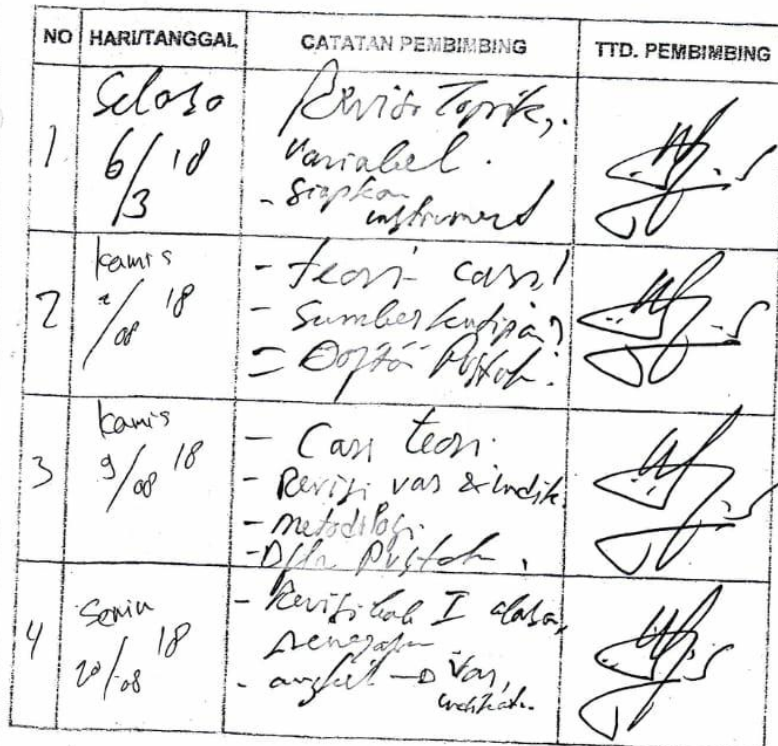 NO HARI/TANGGAL CATATAN PEMBIMBING TTD. PEMBIMBING
1 Selasa 6/3 18
Revisi Topik,
Variabel.
- Siapkan
instrument
2 Kamis 2/08 18
- teori cari!
- Sumber kutipan?
= Daftar Pustak.
3 Kamis 9/08 18
- Cari teori.
- Revisi var & indik.
- metodologi.
- Dftr Pustak.
4 Senin 20/08 18
- Revisi bab I
- angket → Var,
indikator.